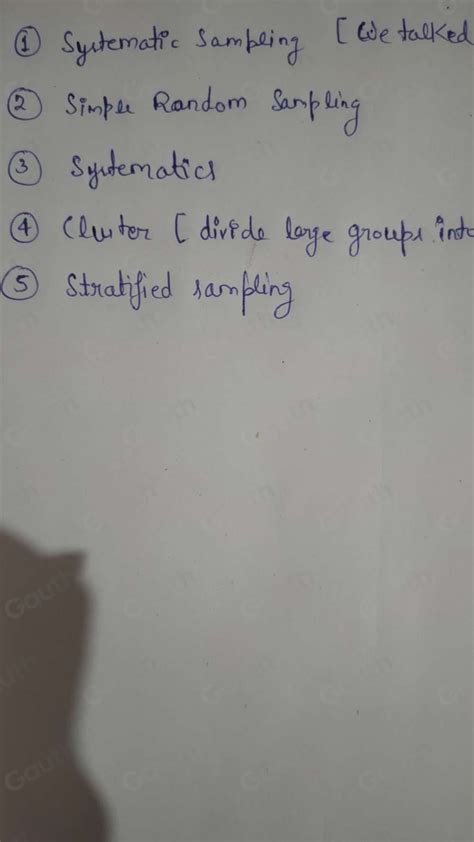 ① Systematic Sampling [ We talked
② Simple Random Sampling
③ Systematics
④ Cluster [ divide large groups into
⑤ Stratified sampling
Gauth
Gauth